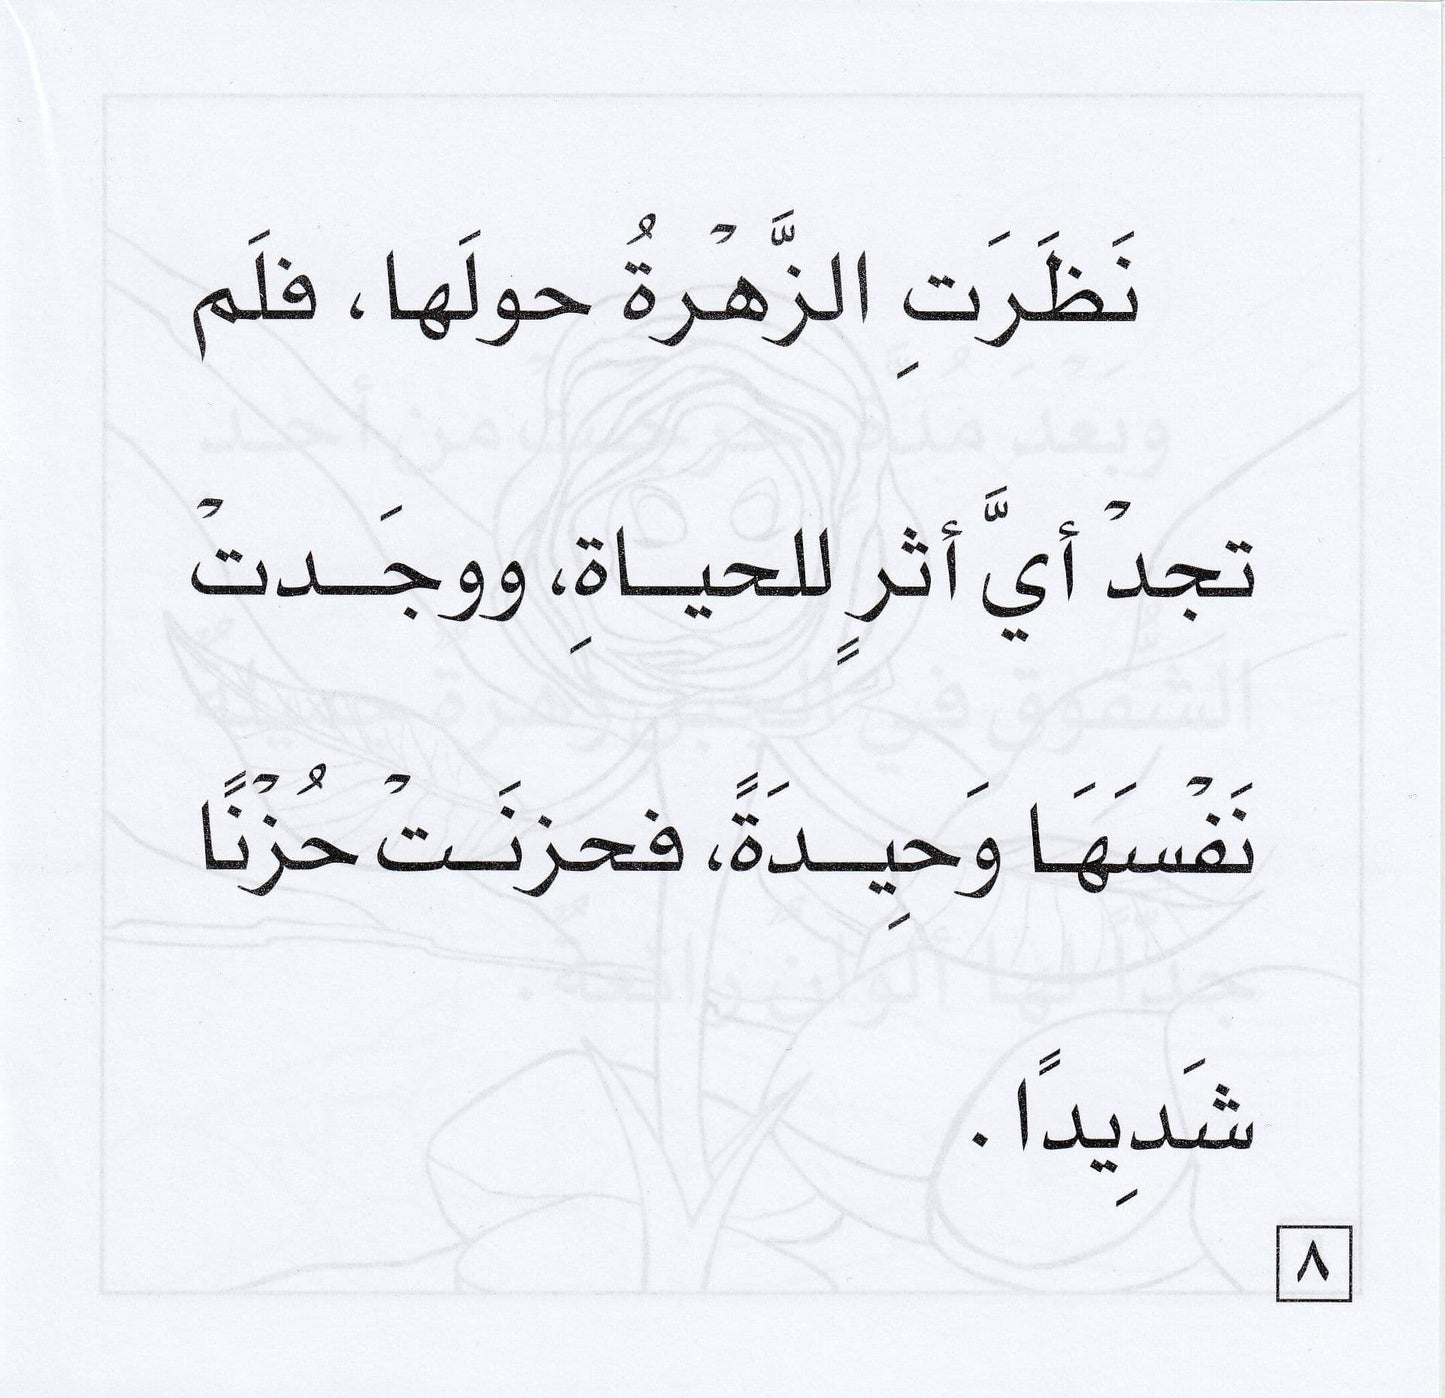 نَظَرَتِ الزَّهْرةُ حولَها، فلَم
تجدْ أيَّ أثرٍ للحياةِ، ووجَدتْ
نَفْسَهَا وَحِيدَةً، فحزنَتْ حُزْنًا
شَديِدًا.
٨